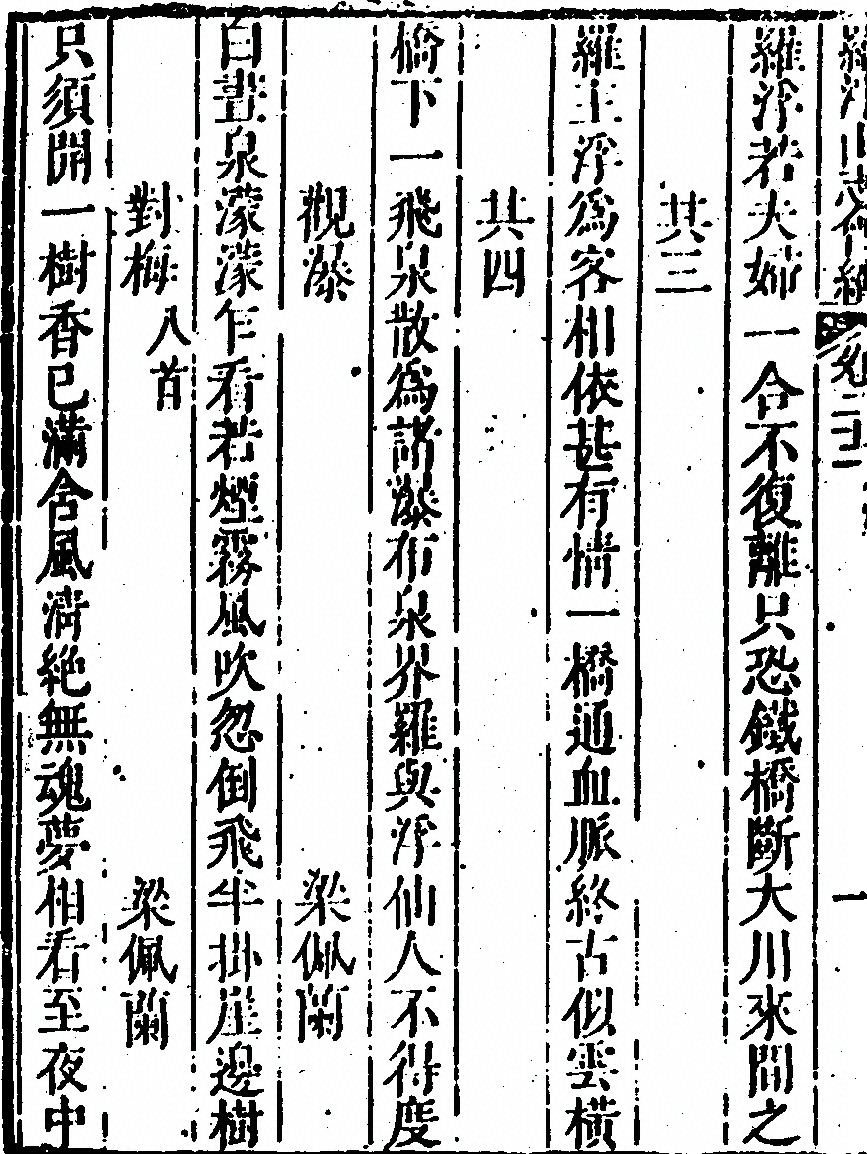 羅浮山志會編 卷二十一 一
羅浮若夫婦一合不復離只恐鐵橋斷大川來間之
其三
羅主浮爲客相依甚有情一橋通血脈終古似雲橫
其四
橋下一飛泉散爲諸瀑布泉界羅與浮仙人不得度
觀瀑 梁佩蘭
白晝泉濛濛乍看若煙霧風吹忽倒飛半掛崖邊樹
對梅八首 梁佩蘭
只須開一樹香已滿含風清絶無魂夢相看至夜中